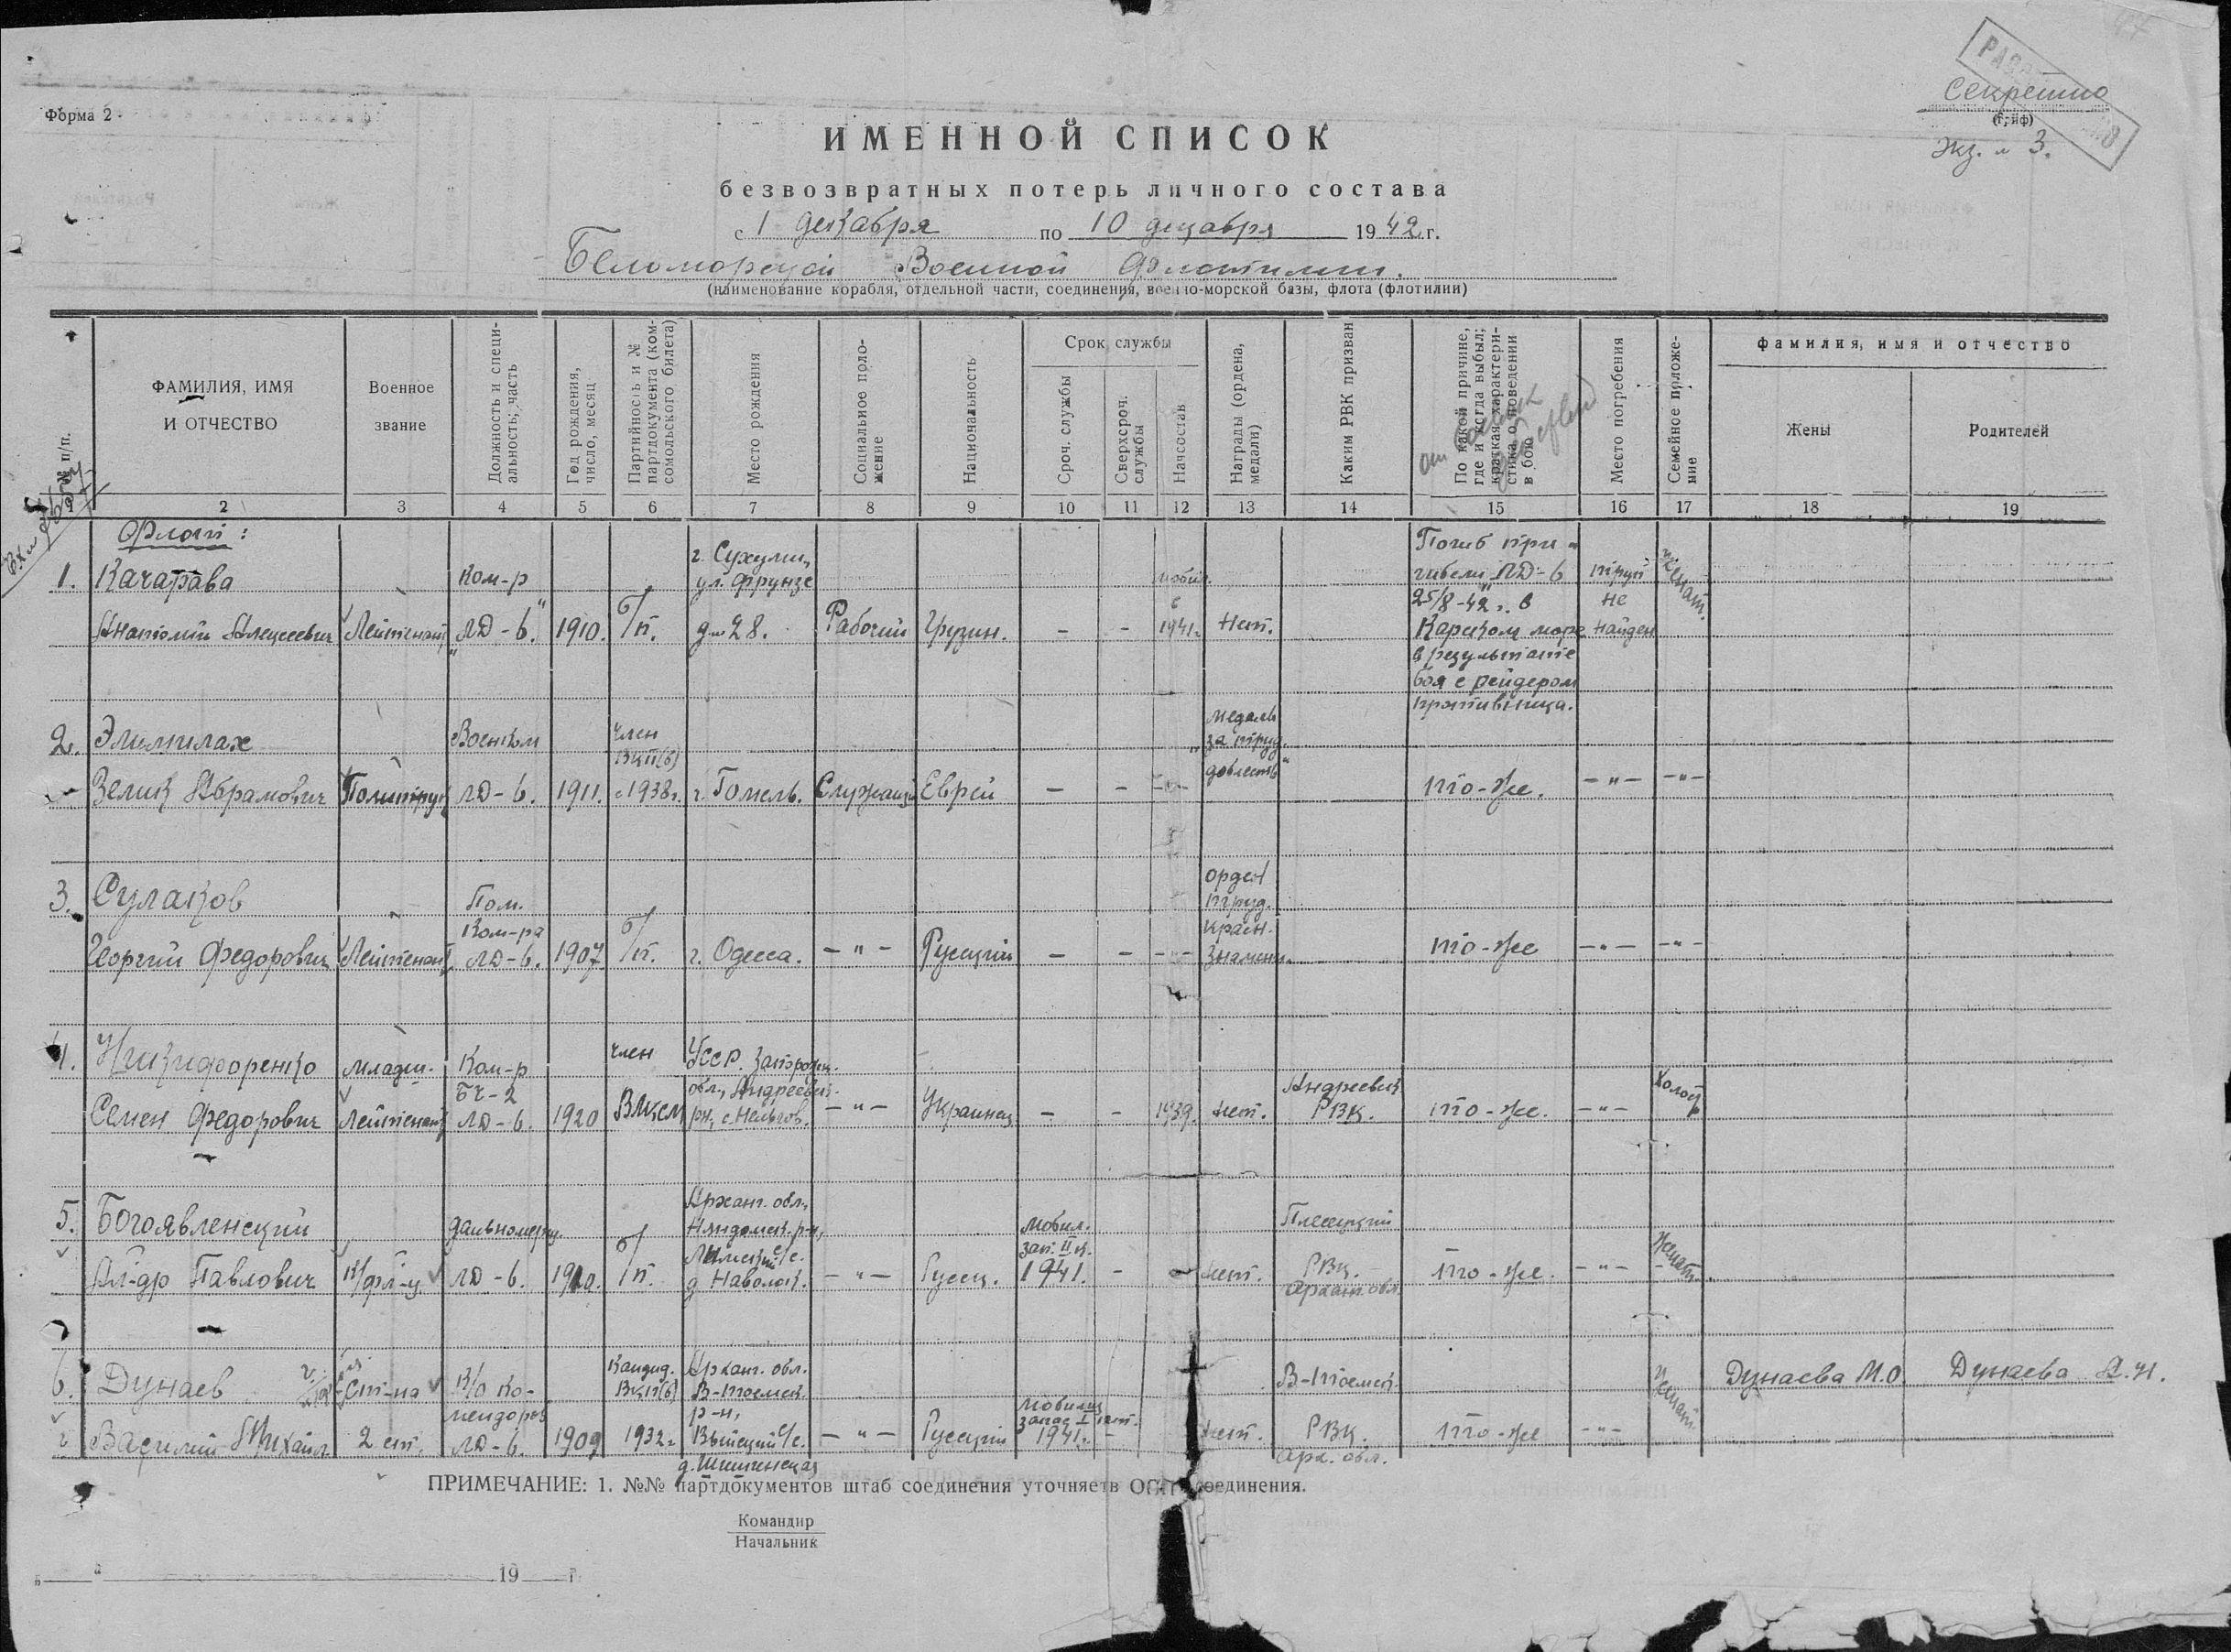 Форма 2
Секретно
(Гриф)
Экз. № 3.
ИМЕННОЙ СПИСОК
безвозвратных потерь личного состава
с 1 декабря по 10 декабря 1942 г.
Беломорской Военной Флотилии.
(наименование корабля, отдельной части, соединения, военно-морской базы, флота (флотилии)
№ п/п.
ФАМИЛИЯ, ИМЯ И ОТЧЕСТВО
Военное звание
Должность и специальность; часть
Год рождения, число, месяц
Партийность и № партдокумента (комсомольского билета)
Место рождения
Социальное положение
Национальность
Срок службы
Сроч. службы
Сверхсроч. службы
Начсостав
Награды (ордена, медали)
Каким РВК призван
По какой причине, где и когда выбыл; краткая характеристика о поведении в бою
Место погребения
Семейное положение
фамилия, имя и отчество
Жены
Родителей
2 3 4 5 6 7 8 9 10 11 12 13 14 15 16 17 18 19
Флот:
1. Качарава
Анатолий Алексеевич
Лейтенант
Ком-р
"ЛД-6."
1910.
б/п.
г. Сухуми,
ул. Фрунзе
д. 28.
Рабочий
Грузин.
-
-
1941г.
Нет.
Погиб при
гибели "ЛД-6"
25/8-42 г. в
Карском море
в результате
боя с рейдером
противника.
труп
не
найден
женат.
2. Элимилах
Зелик Абрамович
Политрук
Военком
ЛД-6.
1911.
член
ВКП(б)
с 1938г.
г. Гомель.
Служащий
Еврей
-
-
-"-
медаль
"за труд.
доблесть"
то-же.
-"-
-"-
3. Сулаков
Георгий Федорович
Лейтенант
Пом.
Ком-ра
ЛД-6.
1907
б/п.
г. Одесса.
-"-
Русский
-
-
-"-
орден
труд.
красн.
знамени.
то-же
-"-
-"-
4. Никифоренко
Семен Федорович
младш.
Лейтенант
Ком-р
БЧ-2
ЛД-6.
1920
член
ВЛКСМ
УССР. Запорожск.
обл., Андреевск.
-"-
Украинец
-
-
1939.
нет.
Андреевск
РВК.
то-же.
-"-
Холост
5. Богоявленский
Ал-др Павлович
К/фл-ц
дальномерщ.
ЛД-6.
б/п.
Арханг. обл.,
Няндомск. р-н,
д. Наволок.
-"-
Русск.
мобил.
зап. II к.
1941.
-
нет.
Плесецкий
РВК.
Арханг. обл.
то-же.
-"-
женат.
6. Дунаев
Василий Михайл.
Ст-на
2 ст.
К/о ко-
мендоров
ЛД-6.
1909
Кандид.
ВКП(б)
1932г.
Арханг. обл.
В-Тоемск.
р-н,
Выйский с/с.
-"-
Русский
мобилиз
1941г.
-
нет.
В-Тоемск.
РВК.
Арх. обл.
то-же
-"-
женат
Дунаева М.О.
Дунаева А.Н.
ПРИМЕЧАНИЕ: 1. №№ партдокументов штаб соединения уточняет в соединения.
Командир
Начальник
" " 19 г.